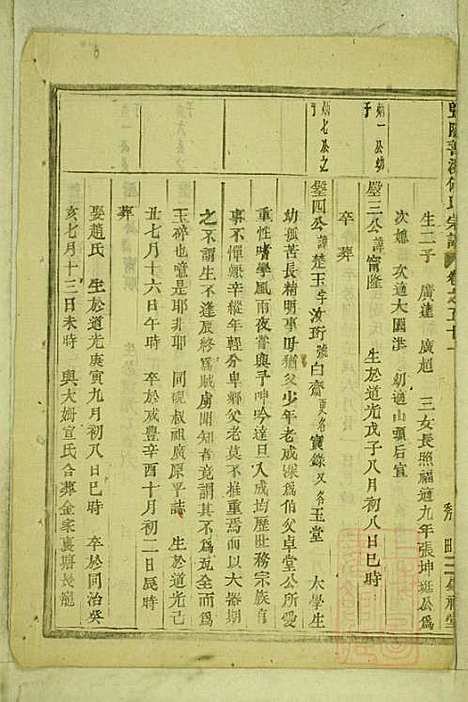 生二子 廣遠 廣超 三女長照福適九年張坤班公爲
次媳 次適大園洪 幼適山頭后宣
第一公幼子
壂三公諱甯隆 生於道光戊子八月初八日巳時
卒 葬
第七公之子
壂四公諱楚玉字汝珩號白齋更名寶錄又名玉堂 大學生
幼孤苦長精明事母猶父少年老成深爲伯父卓堂公所愛
重性嗜學風雨夜嘗與予呻吟達旦入成均歷旺務宗族官
事不憚艱辛縱年輕分卑鄉父老莫不推重焉而以大器期
之不謂生不逢辰終爲賊虜聞知者竟謂其不爲瓦全而爲
玉碎也噫是耶非耶 同硯叔祖廣原平誌 生於道光己
丑七月十六日午時 卒於咸豐辛酉十月初二日辰時
葬
娶趙氏 生於道光庚寅九月初八日巳時 卒於同治癸
亥七月十三日未時 與大姆宣氏合葬金家裏塘長龍